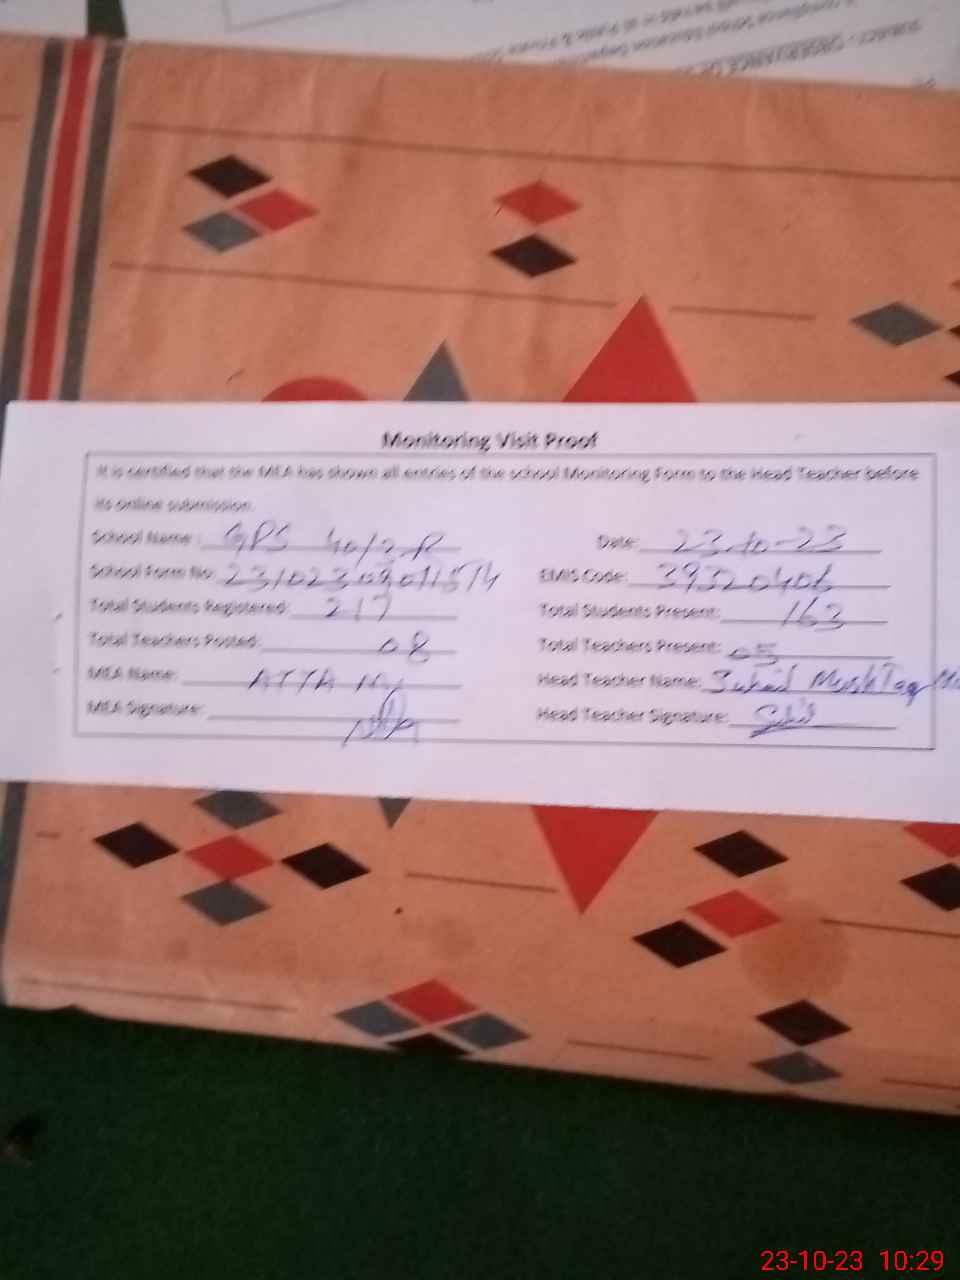 SUBJECT:- OBSERVANCE OF
Monitoring Visit Proof
It is certified that the MEA has shown all entries of the school Monitoring Form to the Head Teacher before
its online submission.
School Name: GPS 40/2-R Date: 23-10-23
School Form No: EMIS Code: 39320406
Total Students Registered: 217 Total Students Present: 163
Total Teachers Posted: 08 Total Teachers Present: 05
MEA Name: ATTA Head Teacher Name: Suhail MushTaq
MEA Signature: Head Teacher Signature:
23-10-23 10:29